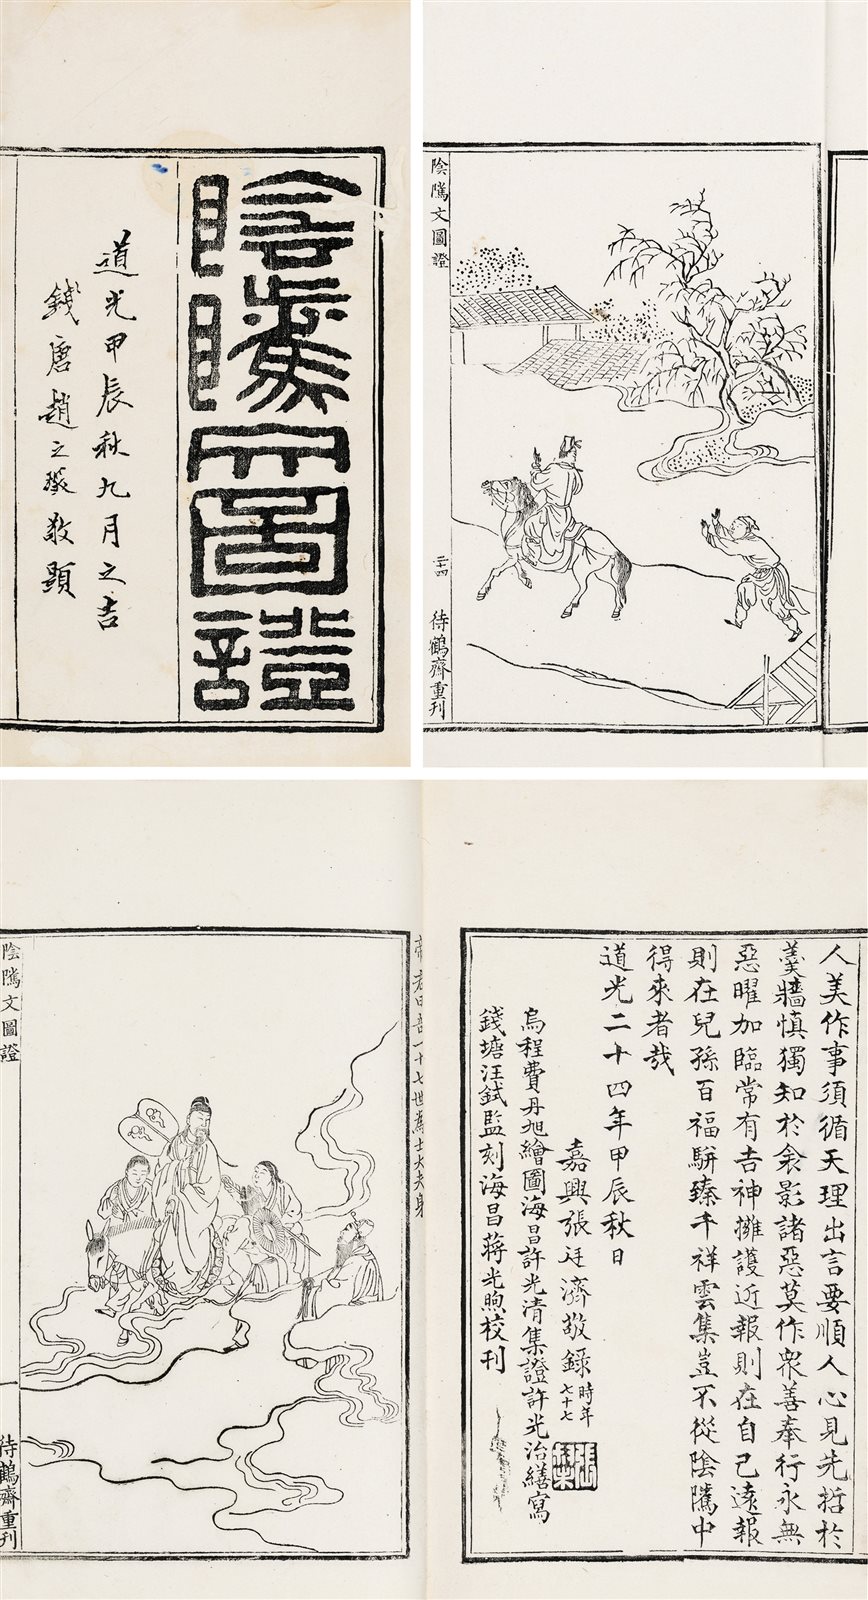 陰騭文圖證
道光甲辰秋九月之吉
錢唐趙之琛敬題
陰隲文圖證
二十四
待鶴齋重刊
人美作事須循天理出言要順人心見先哲於
羹牆慎獨知於衾影諸惡莫作衆善奉行永無
惡曜加臨常有吉神擁護近報則在自己遠報
則在兒孫百福駢臻千祥雲集豈不從陰隲中
得來者哉
道光二十四年甲辰秋日
嘉興張廷濟敬錄時年七十七
烏程費丹旭繪圖海昌許光清集證許光治繕寫
錢塘汪鉽監刻海昌蔣光煦校刊
帝君曰吾一十七世為士大夫身
陰隲文圖證
一
待鶴齋重刊